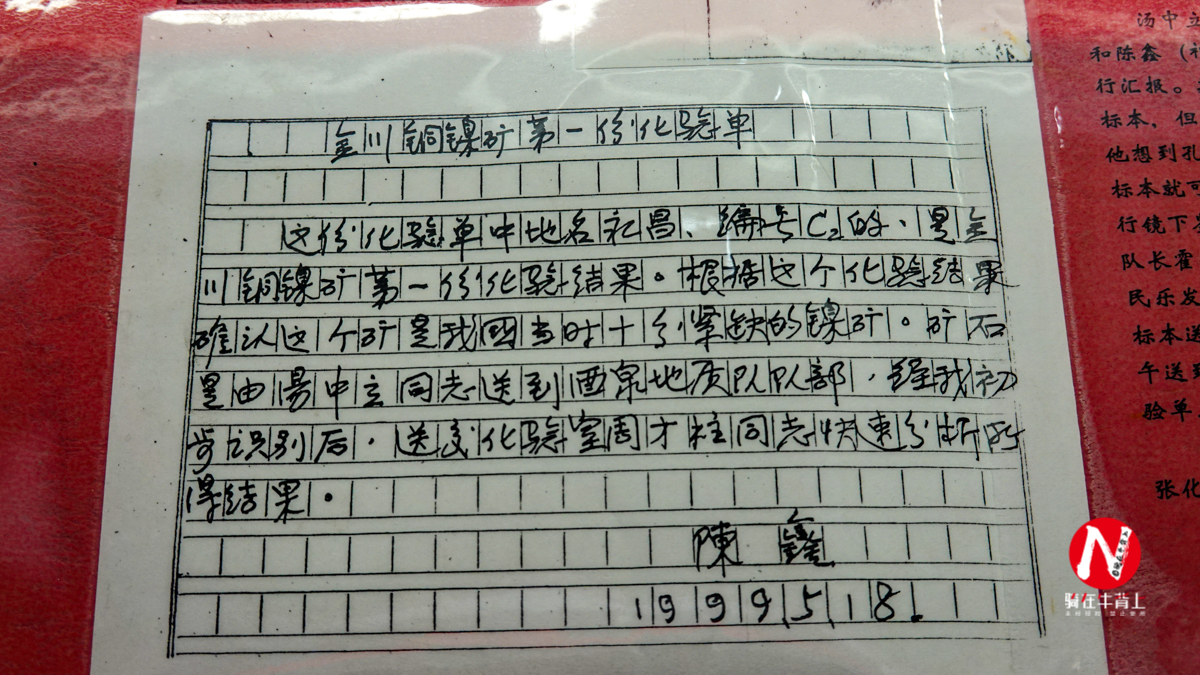 金川铜镍矿第一份化验单
这份化验单中地名永昌、编号C2的，是金
川铜镍矿第一份化验结果。根据这个化验结果
确认这个矿是我國当时十分紧缺的镍矿。矿石
是由汤中立同志送到酒泉地质队队部，经我初
步识别后，送交化验室周才柱同志快速分析所
得结果。
陳鑫
1999 5 18.
汤中立
和陈鑫（
行汇报。
标本，但
他想到孔
标本就可
行镜下
队长霍
民乐发
标本送
午送到
验单
张化
骑在牛背上